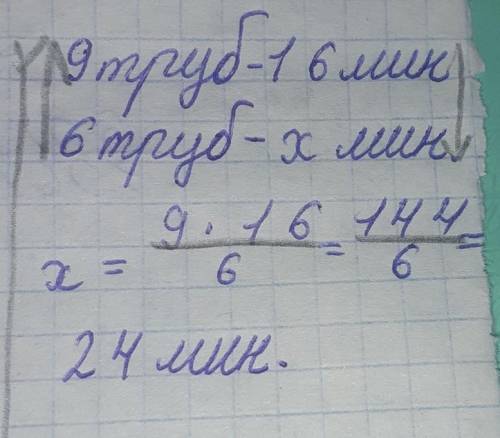 9труб-16мин
6труб-х мин
х = 9·16/6 = 144/6 =
24 мин.